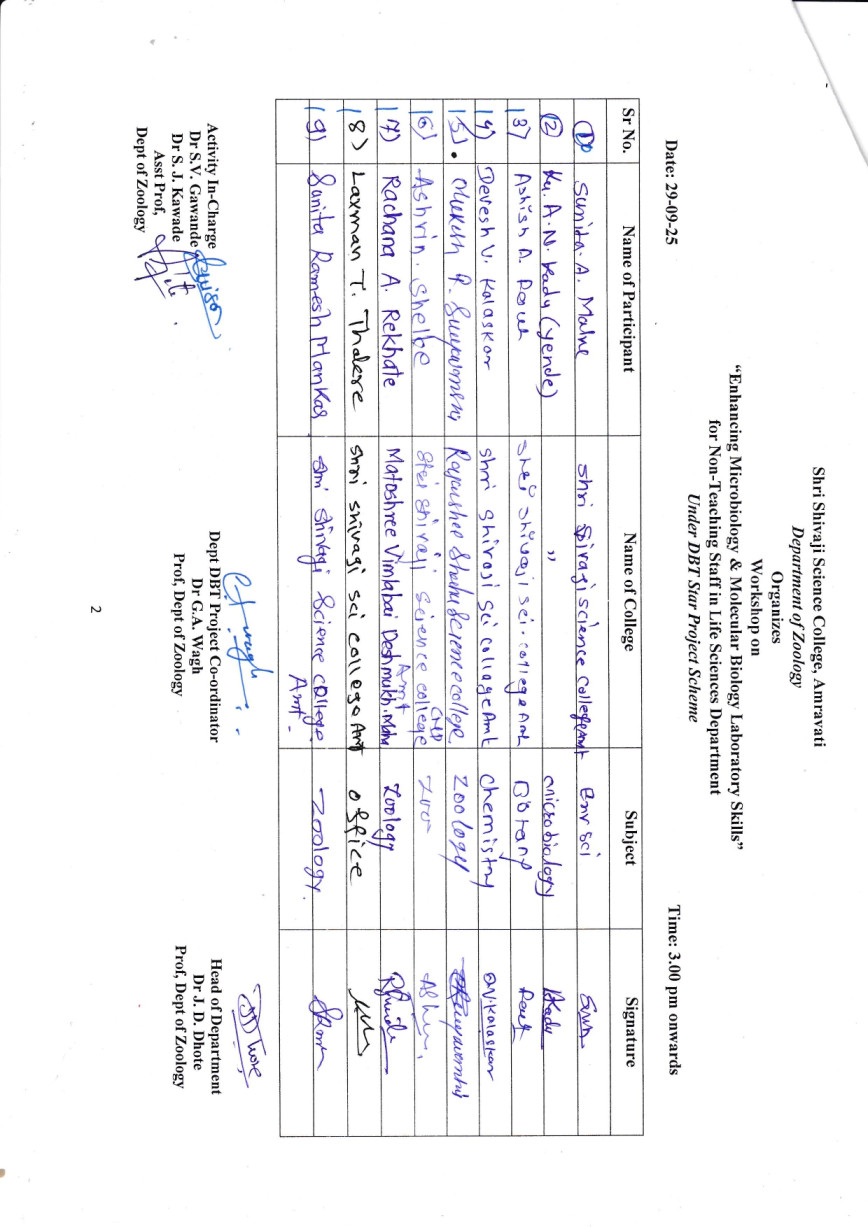 Shri Shivaji Science College, Amravati
Department of Zoology
Organizes
Workshop on
“Enhancing Microbiology & Molecular Biology Laboratory Skills”
for Non-Teaching Staff in Life Sciences Department
Under DBT Star Project Scheme
Date: 29-09-25 Time: 3.00 pm onwards
Sr No. Name of Participant Name of College Subject Signature
Sunita. A. Malve Shri science college Amt Env sci
12) Ku. A. N. Kady (yende) " microbiology Kady
13) Ashish D. Raut Shri Shivaji sci. college Amt Botany Raut
14) Devesh V. Kalaskar Shri Shivaji sci collage Amt chemistry DVKalaskar
15) Mukesh R. Suryawanshi Rajarshee Shahu Science college Zoology
CHD
16) Ashrin. Shelbe Shri Shivaji science college Zoo
17) Rachana A. Rekhate Matoshree Vimlabai Deshmukh. Maha Amt Zoology
18) Laxman T. Thakere Shri Shivagi sci collego Amt office
19) Sunita Ramesh Mankar Shri Shivagi Science College Amt. Zoology
Activity In-Charge
Dr S.V. Gawande
Dr S. J. Kawade
Asst Prof,
Dept of Zoology
Dept DBT Project Co-ordinator
Dr G.A. Wagh
Prof, Dept of Zoology
Head of Department
Dr J. D. Dhote
Prof, Dept of Zoology
2